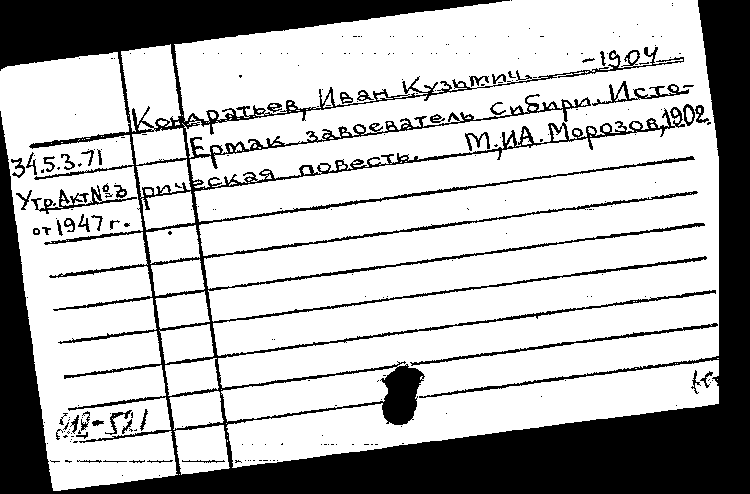 Кондратьев, Иван Кузьмич. -1904
Ермак завоеватель Сибири. Исто-
34.5.3.71
рическая повесть. М., И.А. Морозов, 1902.
Утр. Акт № 3
от 1947 г.
212-521